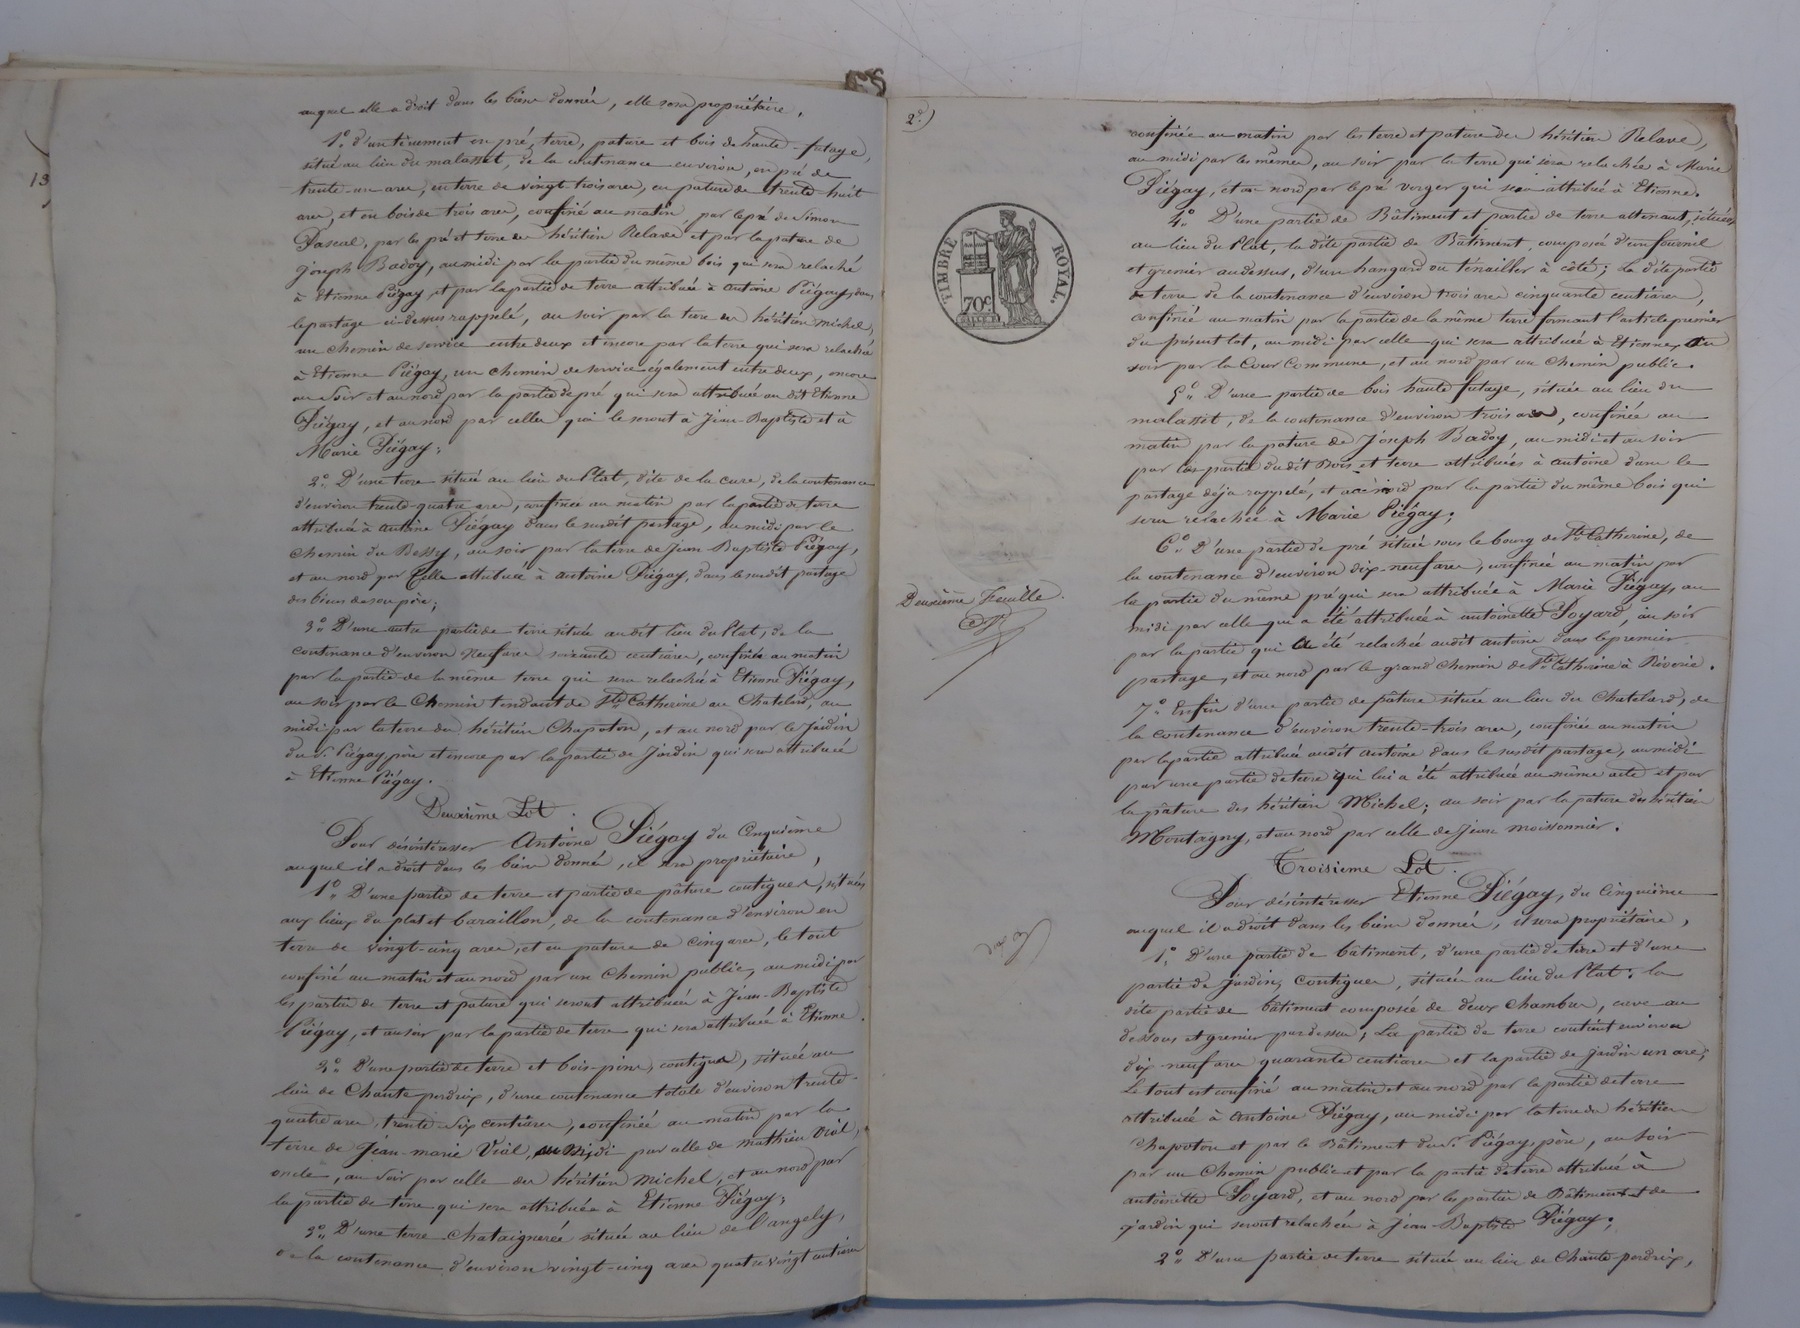 auquel elle a droit dans les biens donnés, elle sera propriétaire,
1º d'un tènement en pré, terre, pature et bois de haute-futaye,
situé au lieu du malasset, de la contenance environ, en pré de
trente-un ares, en terre de vingt-trois ares, en pature de trente huit
ares, et en bois de trois ares, confiné au matin, par le pré de Simon
Pascal, par les pré et terre des héritiers Relave et par la pature de
joseph Badoy, au midi par la partie du même bois qui sera relaché
à Etienne Piégay, et par la partie de terre attribuée à antoine Piégay, dans
le partage ci-dessus rappelé, au soir par la terre des héritiers michel,
un chemin de service entre deux et encore par la terre qui sera relachée
à Etienne Piégay, un chemin de service également entre deux, encore
au soir et au nord par la partie de pré qui sera attribuée au dit Etienne
Piégay, et au nord par celles qui le seront à Jean-Baptiste et à
Marie Piégay;
2º D'une terre située au lieu du Plat, dite de la cure, de la contenance
d'environ trente-quatre ares, confinée au matin par la partie de terre
attribuée à antoine Piégay dans le susdit partage, au midi par le
chemin du Bessy, au soir par la terre de Jean-Baptiste Piégay,
et au nord par Celle attribuée à antoine Piégay, dans le susdit partage
des biens de son père;
3º D'une autre partie de terre située au dit lieu du Plat, de la
contenance d'environ Neuf ares soixante centiares, confinée au matin
par la partie de la même terre qui sera relachée à Etienne Piégay,
au soir par le Chemin tendant de Ste Catherine au Chatelard, au
midi par la terre des héritiers Chapoton, et au nord par le Jardin
du Sr. Piégay, père et encore par la partie de Jardin qui sera attribuée
à Etienne Piégay.
Deuxième Lot.
Pour désintéresser Antoine Piégay du Cinquième
auquel il a droit dans les biens donnés, il sera propriétaire,
1º D'une partie de terre et partie de pâture contigues, situées
aux lieux du plat et baraillon, de la contenance d'environ en
terre de vingt-cinq ares, et en pature de cinq ares, le tout
confiné au matin et au nord par un Chemin public, au midi par
les partie de terre et pature qui seront attribuées à Jean-Baptiste
Piégay, et au soir par la partie de terre qui sera attribuée à Etienne.
2º D'une partie de terre et bois-pins, contigus, située au
lieu de Chante perdrix, d'une contenance totale d'environ trente-
quatre ares trente-dix centiares, confinée au matin par la
terre de Jean-marie Vial, au Midi par celle de mathieu Vial,
oncle, au soir par celle des héritiers michel, et au nord par
la partie de terre qui sera attribuée à Etienne Piégay;
3º D'une terre Chataignerée située au lieu de l'angely,
de la contenance d'environ vingt-cinq ares quatre vingt centiares
13
2e.)
TIMBRE ROYAL.
70c
Deuxième Feuille.
confinée au matin par les terre et pature des héritiers Relave,
au midi par les mêmes, au soir par la terre qui sera relachée à Marie
Piégay, et au nord par le pré verger qui sera attribué à Etienne.
4º D'une partie de Bâtiment et partie de terre attenant, situées
au lieu du Plat, la dite partie de Bâtiment, composée d'un fournil
et grenier au dessus, d'un hangard ou ténailler à côté; La dite partie
de terre de la contenance d'environ trois ares cinquante centiares,
confinée au matin par la partie de la même terre formant l'article premier
du présent lot, au midi par celle qui sera attribuée à Etienne, Au
soir par la Cour Commune, et au nord par un Chemin public.
5º D'une partie de bois haute futaye, située au lieu du
malasset, de la contenance d'environ trois ares, confinée au
matin par la pature de Joseph Badoy, au midi et au soir
par les parties du dit Bois et terre attribuées à antoine dans le
partage déja rappelé, et au nord par la partie du même bois qui
sera relachée à Marie Piégay;
6º D'une partie de pré située sous le bourg de Ste Catherine, de
la contenance d'environ dix-neuf ares, confinée au matin par
la partie du même pré qui sera attribuée à Marie Piégay, au
midi par celle qui a été attribuée à antoinette Poyard, au soir
par la partie qui a été relaché audit antoine dans le premier
partage, et au nord par le grand chemin de Ste Catherine à Riverie.
7º Enfin d'une partie de pâture située au lieu du Chatelard, de
la contenance d'environ trente-trois ares, confinée au matin
par la partie attribuée audit antoine dans le susdit partage, au midi
par une partie de terre qui lui a été attribuée au même acte et par
la pâture des héritiers Michel; au soir par la pature des héritiers
Montagny, et au nord par celle de Jean moissonnier.
Troisième Lot.
Pour désintéresser Etienne Piégay, du Cinquième
auquel il a droit dans les biens donnés, il sera propriétaire,
1º D'une partie de bâtiment, d'une partie de terre et d'une
partie de jardin, Contigues, situées au lieu du Plat; la
dite partie de bâtiment composée de deux chambres, cave au
dessous et grenier par dessus; La partie de terre contient environ
dix-neuf ares quarante centiares et la partie de jardin un are;
Le tout est confiné au matin et au nord par la partie de terre
attribuée à Antoine Piégay, au midi par la terre des héritiers
Chapoton et par le Bâtiment du Sr. Piégay, père, au soir
par un Chemin public et par la partie de terre attribuée à
antoinette Poyard, et au nord par les parties de Bâtiment et de
jardin qui seront relachées à Jean-Baptiste Piégay;
2º D'une partie de terre située au lieu de Chante-perdrix,